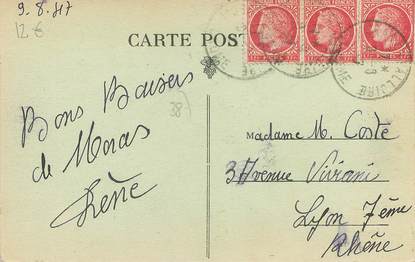 9-8-47
126
CARTE POST
38
Bons Baisers
de Moras
Rène
Madame M. Coste
37 Avenue Viviani
Lyon 7ème
Rhône